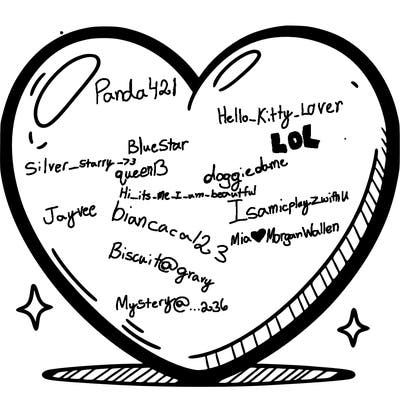 Panda421
Hello_Kitty_Lover
LOL
BlueStar
Silver_starry_73
queenB
doggiedame
Hi_its_me_I_am_beautiful
Jayvee
biancaca123
Isamicplay_Zwithu
Mia♥MorganWallen
Biscuit@gravy
Mystery@...2036